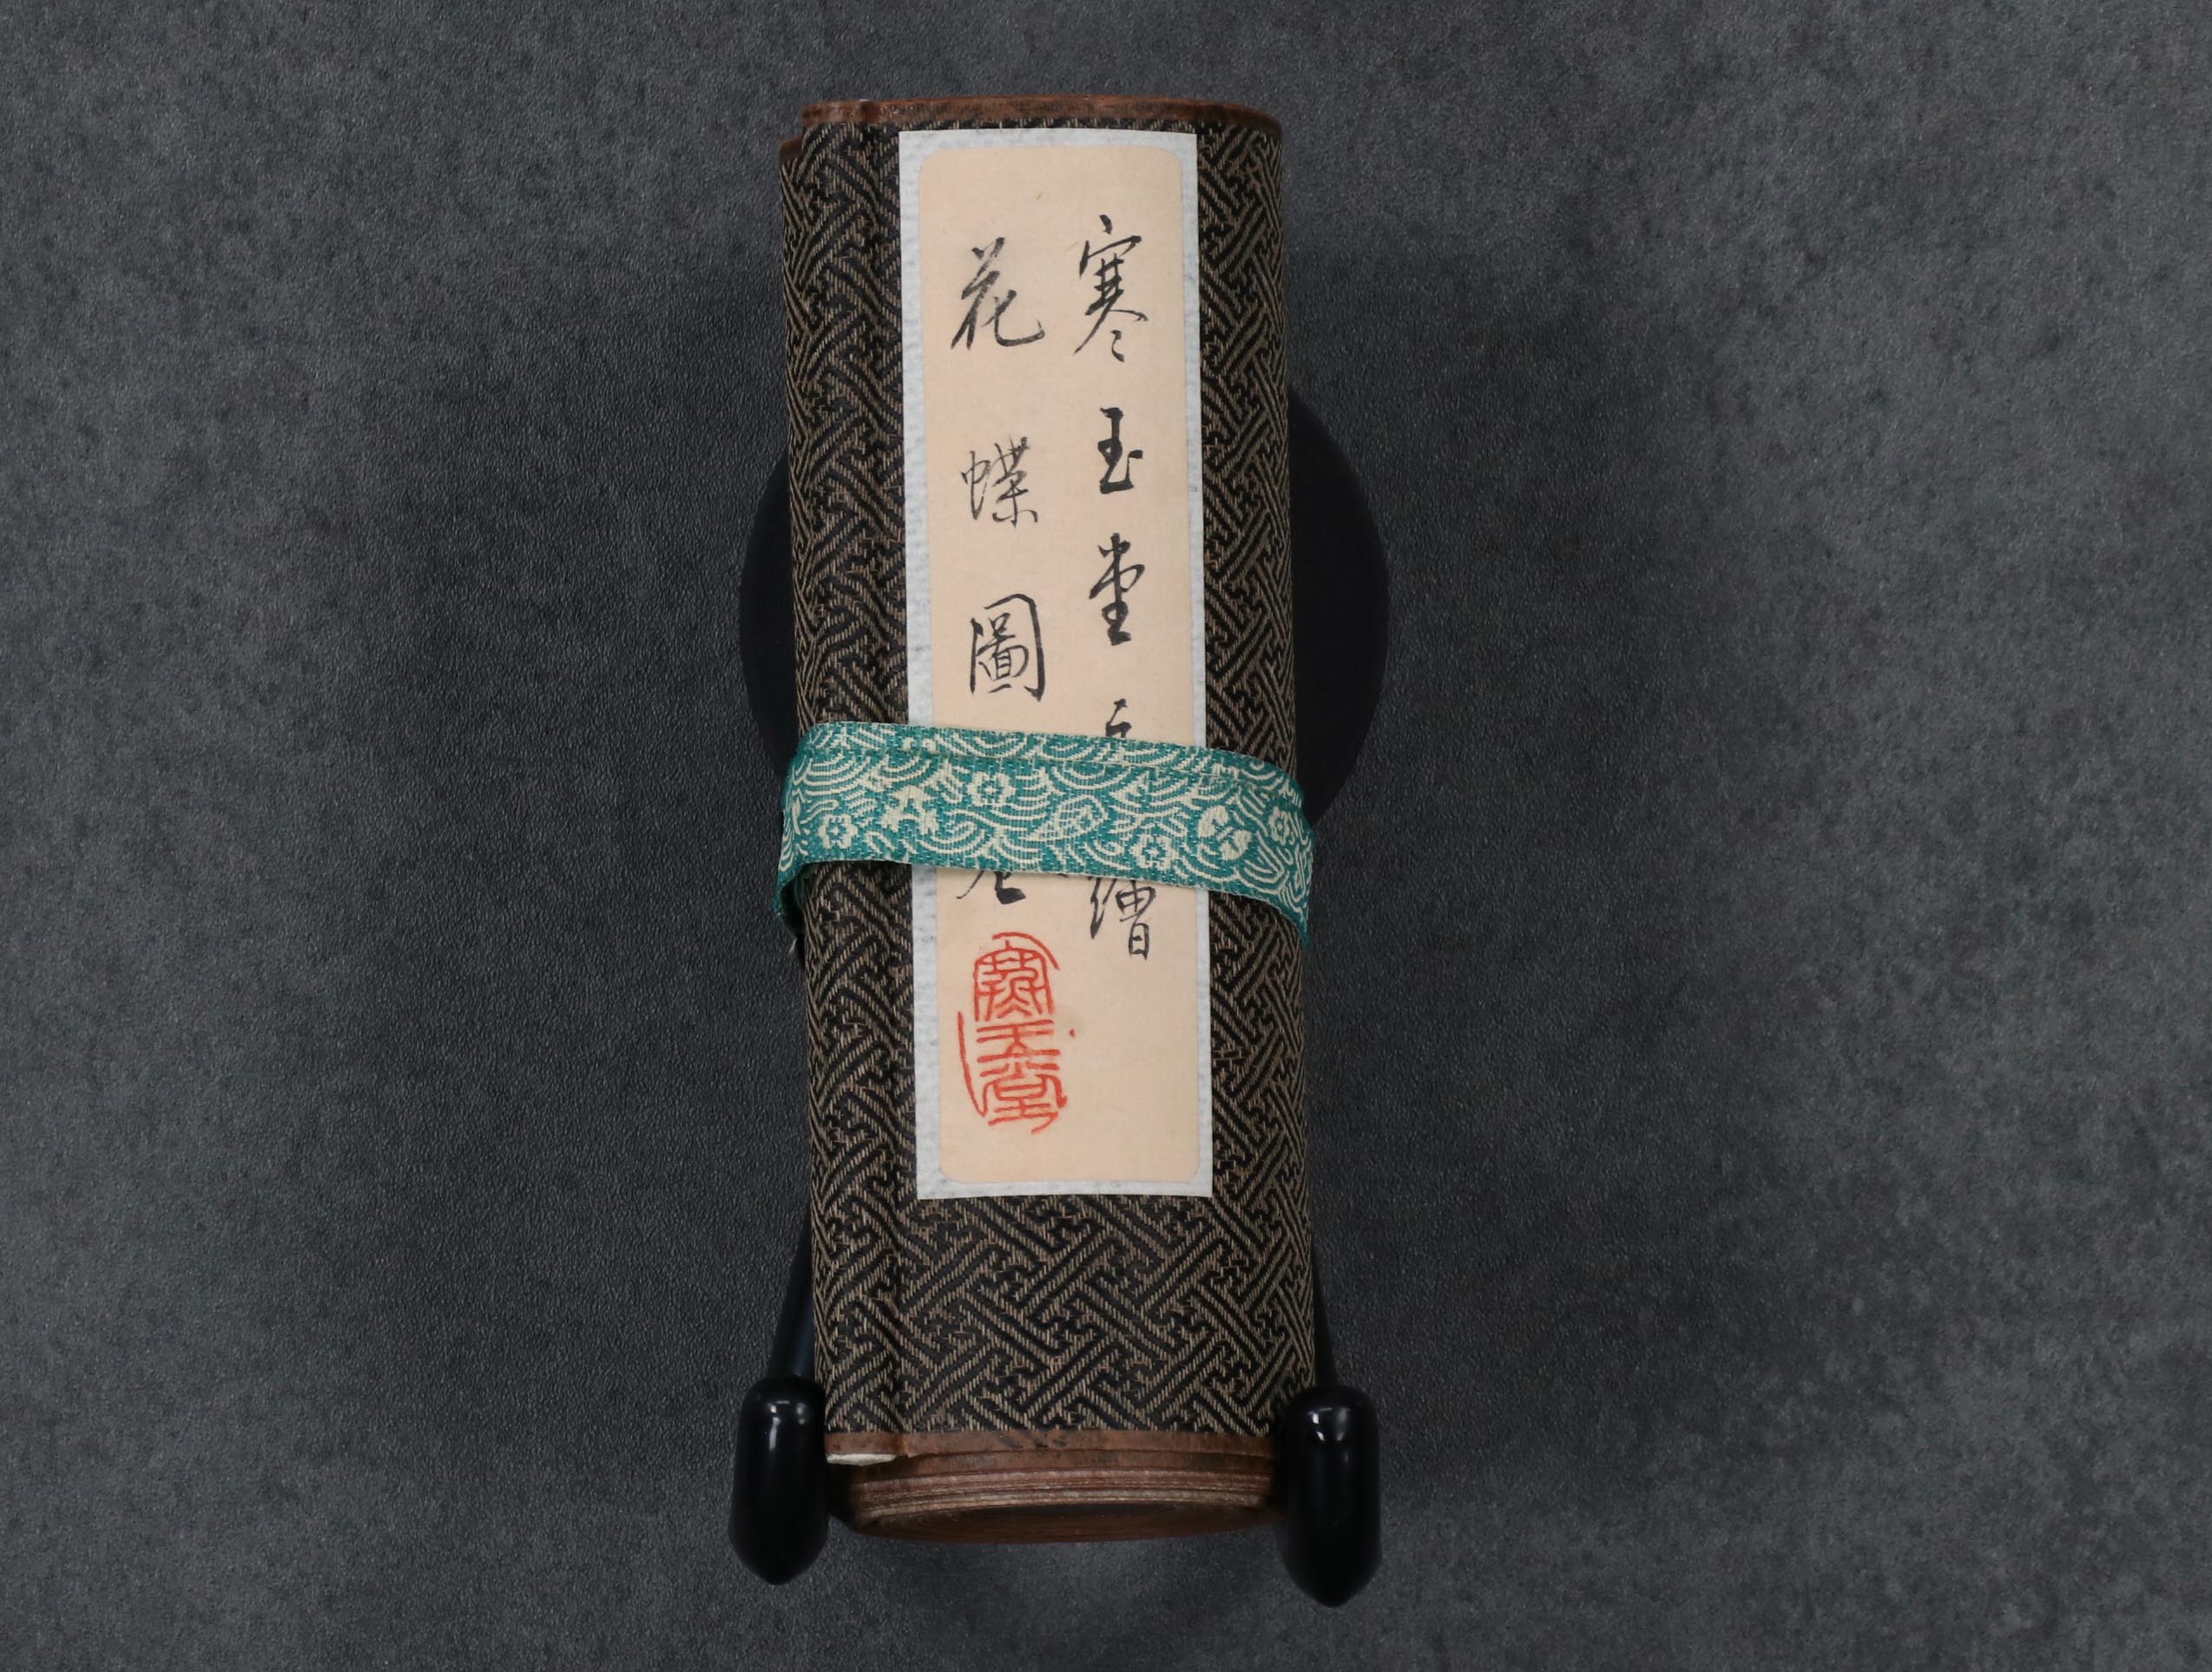 寒玉堂 繪
花蝶圖
寒玉堂